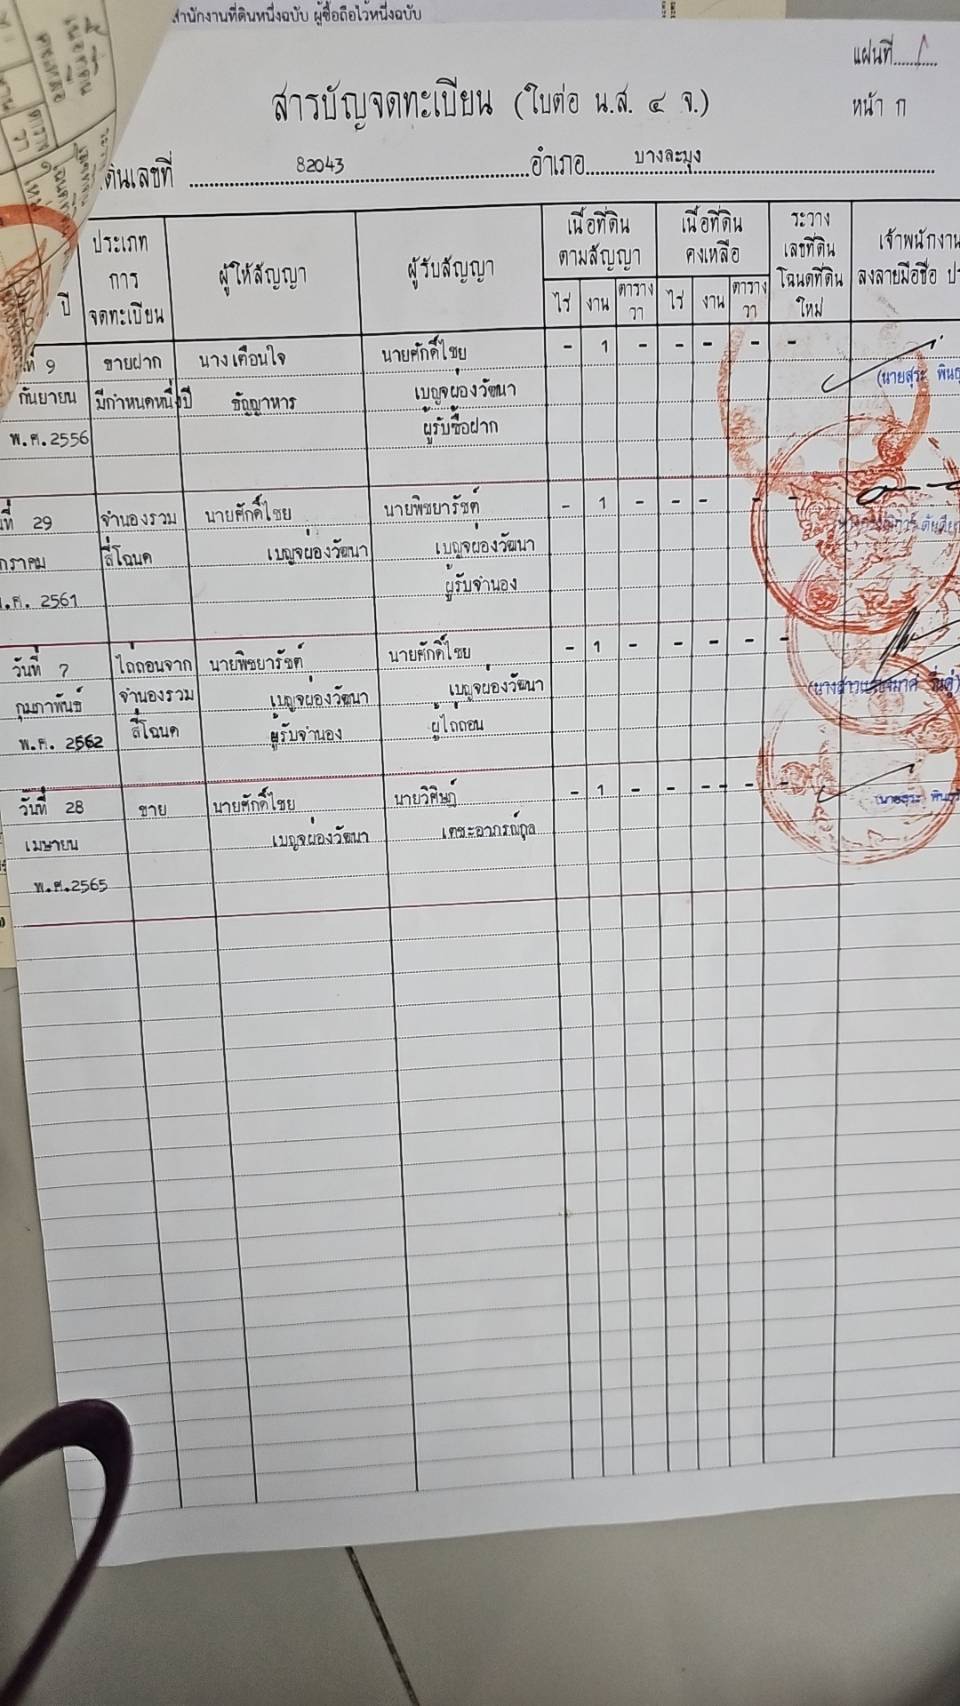 สำนักงานที่ดินหนึ่งฉบับ ผู้ซื้อถือไว้หนึ่งฉบับ
แผ่นที่
สารบัญจดทะเบียน (ใบต่อ น.ส. ๔ จ.)
หน้า ก
ดินเลขที่ 82043 อำเภอ บางละมุง
ปี
ประเภท การ จดทะเบียน
ผู้ให้สัญญา
ผู้รับสัญญา
เนื้อที่ดิน ตามสัญญา
เนื้อที่ดิน คงเหลือ
ระวาง เลขที่ดิน โฉนดที่ดิน ใหม่
เจ้าพนักงาน ลงลายมือชื่อ
ไร่ งาน ตาราง วา ไร่ งาน ตาราง วา
ที่ 9 ขายฝาก นางเตือนใจ นายศักดิ์ไชย - 1 - - - - -
กันยายน มีกำหนดหนึ่งปี ธัญญาหาร เบญจผ่องวัฒนา (นายสุระ
พ.ศ.2556 ผู้รับซื้อฝาก
ที่ 29 จำนองรวม นายศักดิ์ไชย นายพิชยารัชต์ - 1 - - - - -
กราคม สี่โฉนด เบญจผ่องวัฒนา เบญจผ่องวัฒนา
พ.ศ. 2561 ผู้รับจำนอง
วันที่ 7 ไถ่ถอนจาก นายพิชยารัชต์ นายศักดิ์ไชย - 1 - - - - -
กุมภาพันธ์ จำนองรวม เบญจผ่องวัฒนา เบญจผ่องวัฒนา
พ.ศ. 2562 สี่โฉนด ผู้รับจำนอง ผู้ไถ่ถอน
วันที่ 28 ขาย นายศักดิ์ไชย นายวิศิษฎ์ - 1 - - - - -
เมษายน เบญจผ่องวัฒนา เตชะอาภรณ์กุล (นายสุระ
พ.ศ.2565